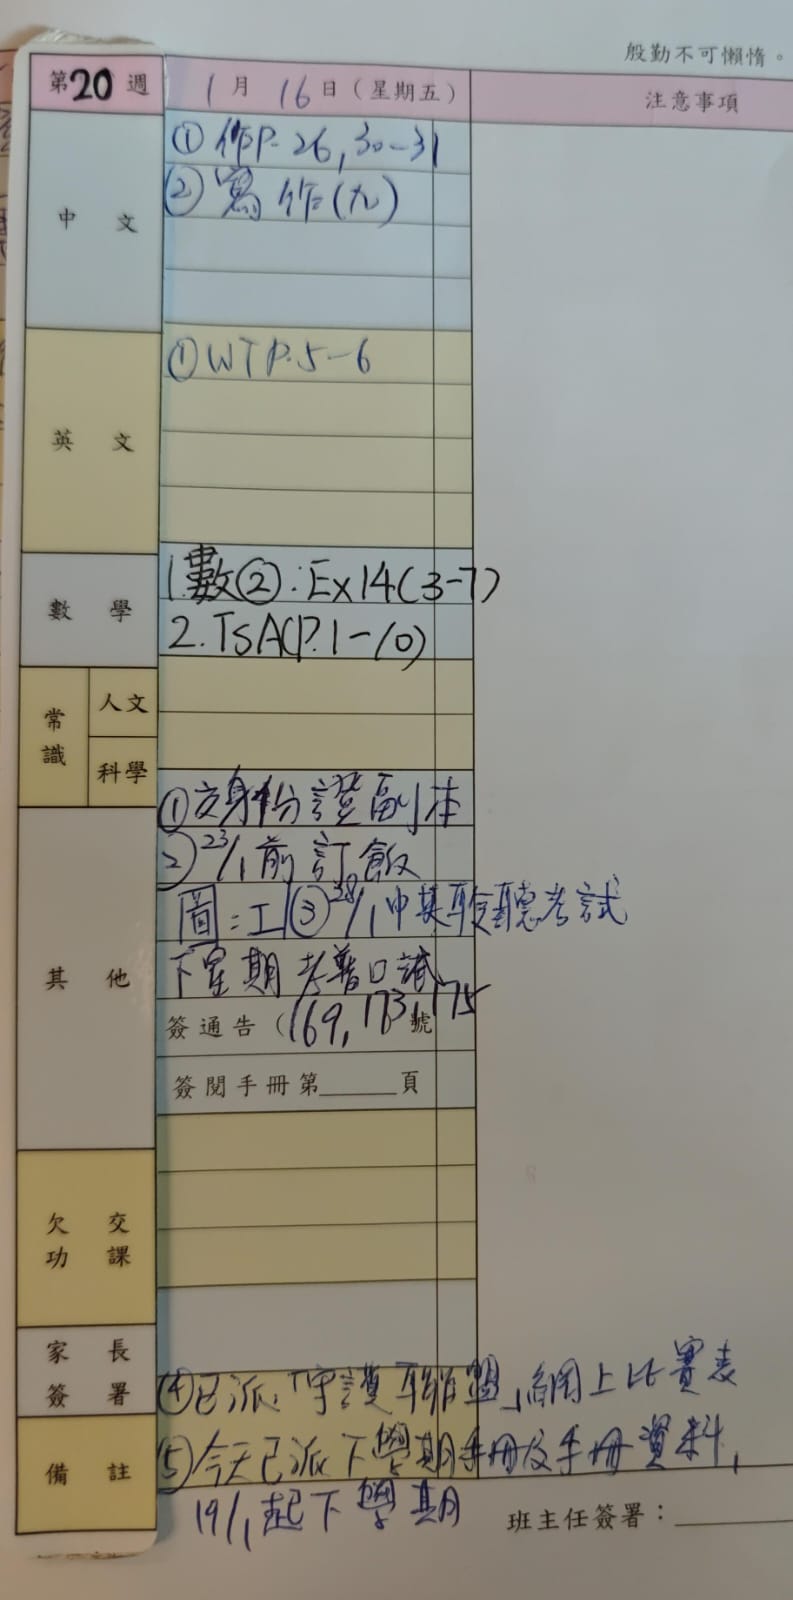 殷勤不可懶惰。
第20週
1月16日(星期五)
注意事項
中文
①作P.26,30-31
②寫作(九)
英文
①WTP.5-6
數學
1.數②:Ex14(3-7)
2.TSA(P.1-10)
常識
人文
科學
其他
①交身份證副本
②23/1前訂飯
圖:工 ③28/1中英聆聽考試
下星期考普口試
簽通告(169,173,175號
簽閱手冊第______頁
欠交功課
家長簽署
④已派「守護聯盟」網上比賽表
備註
⑤今天已派下學期手冊及手冊資料,
19/1起下學期
班主任簽署: